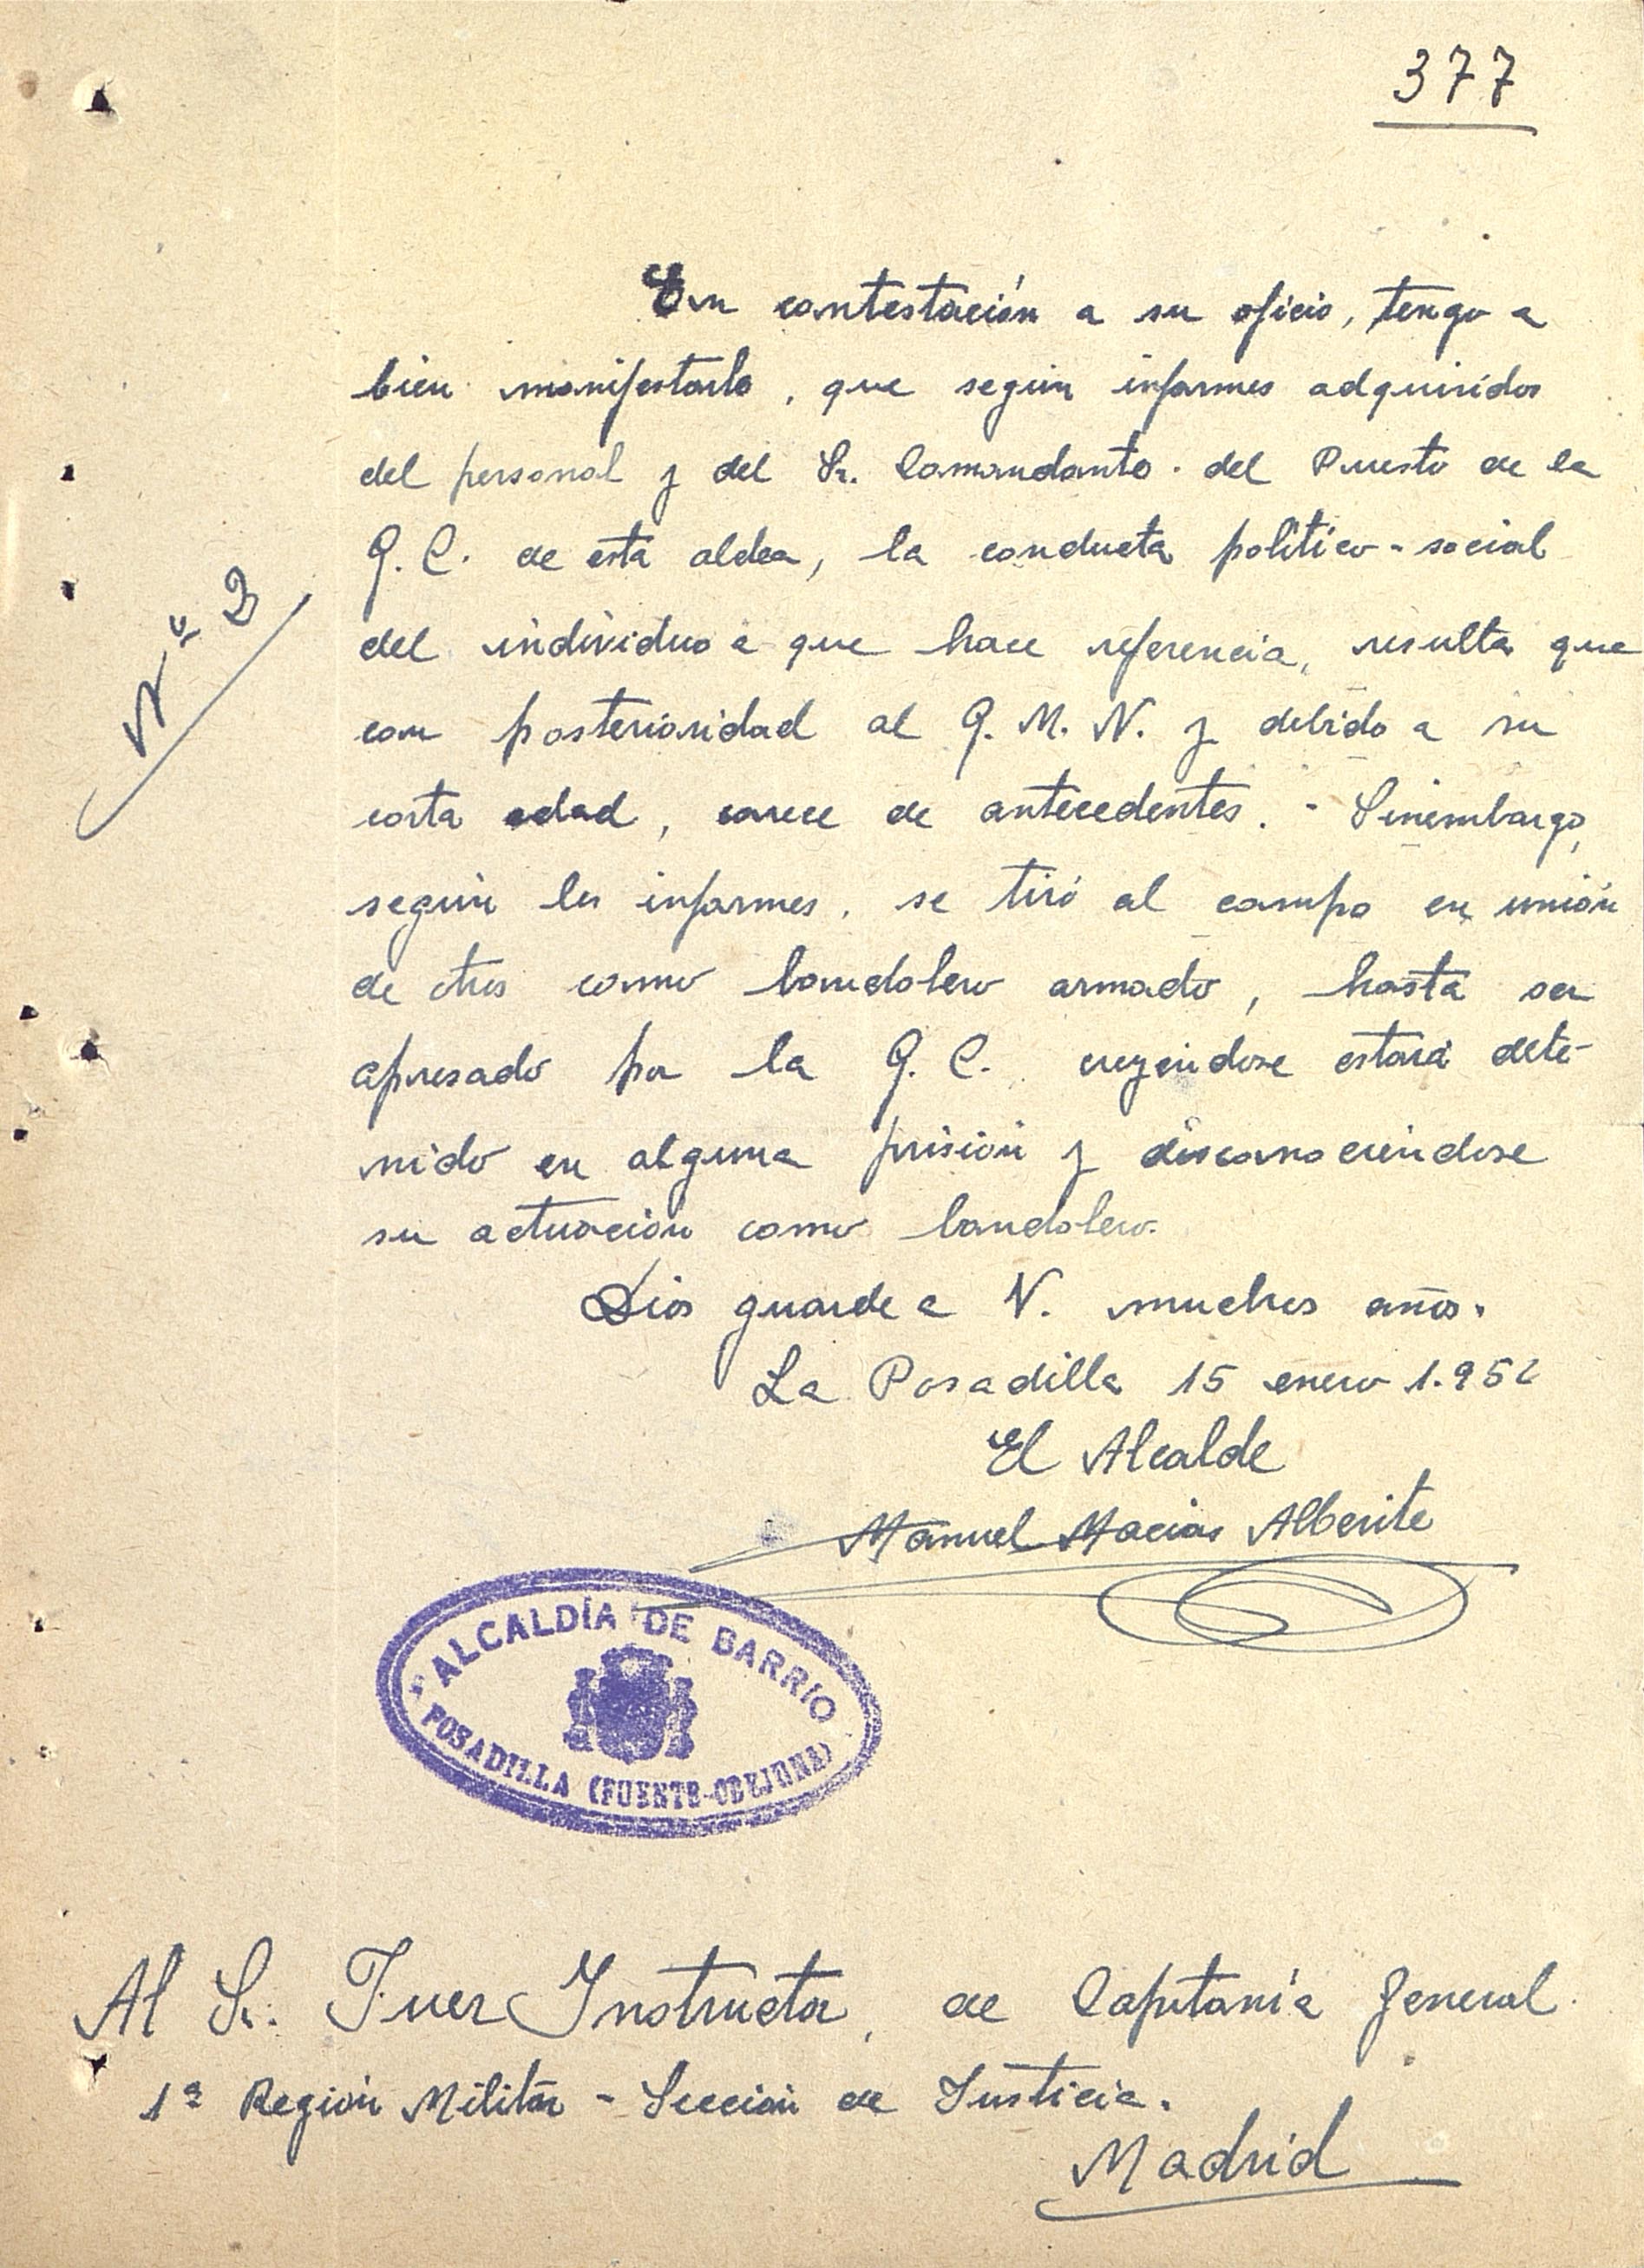 377
En contestación a su oficio, tengo a
bien manifestarle, que según informes adquiridos
del personal y del Sr. Comandante del Puesto de la
G. C. de esta aldea, la conducta politico-social
del individuo a que hace referencia, resulta que
con posterioridad al G. M. N. y debido a su
corta edad, carece de antecedentes. - Sinembargo,
según los informes, se tiró al campo en unión
de otros como bandolero armado, hasta ser
apresado por la G. C. creyéndose estará dete-
nido en alguna prisión y desconociéndose
su actuación como bandolero.
Nº 2
Dios guarde a V. muchos años.
La Posadilla 15 enero 1.952
El Alcalde
Manuel Macias Alberite
ALCALDÍA DE BARRIO
POSADILLA (FUENTE-OBEJUNA)
Al Sr. Juez Instructor, de Capitanía General
1ª Región Militar - Sección de Justicia.
Madrid